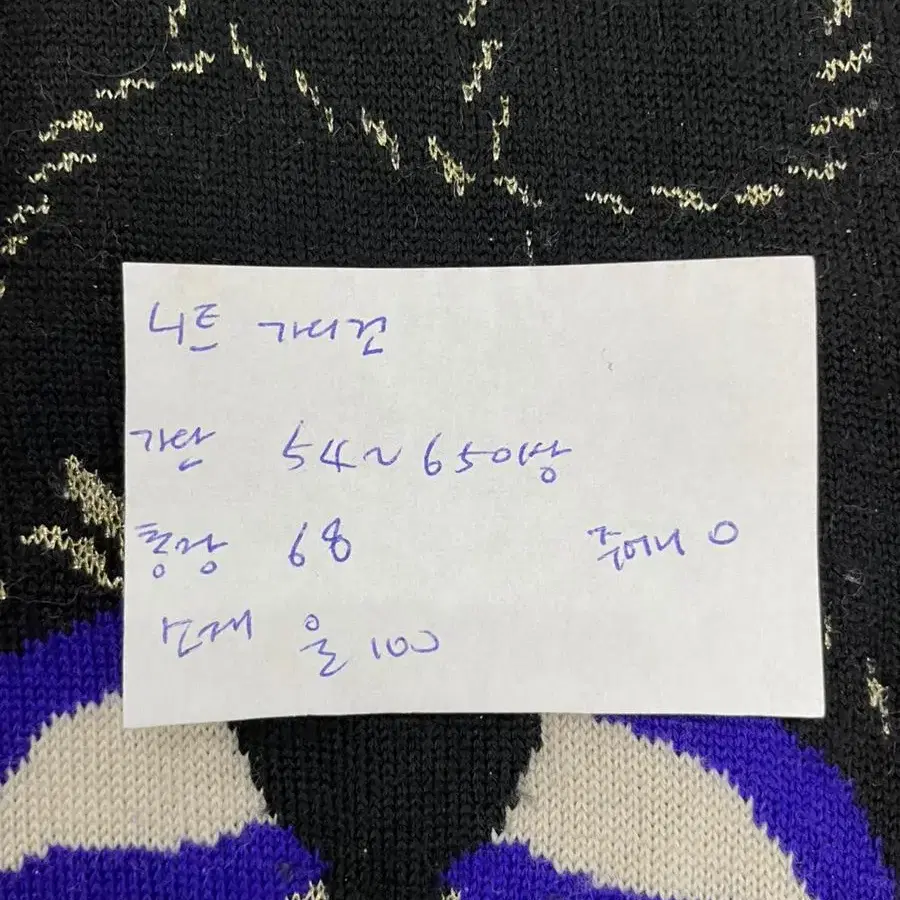 니트 가디건
가단 54~65이상
총장 68 주머니 O
소재 울 100